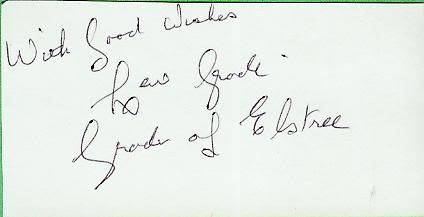 With Good Wishes
Lew Grade
Grade of Elstree